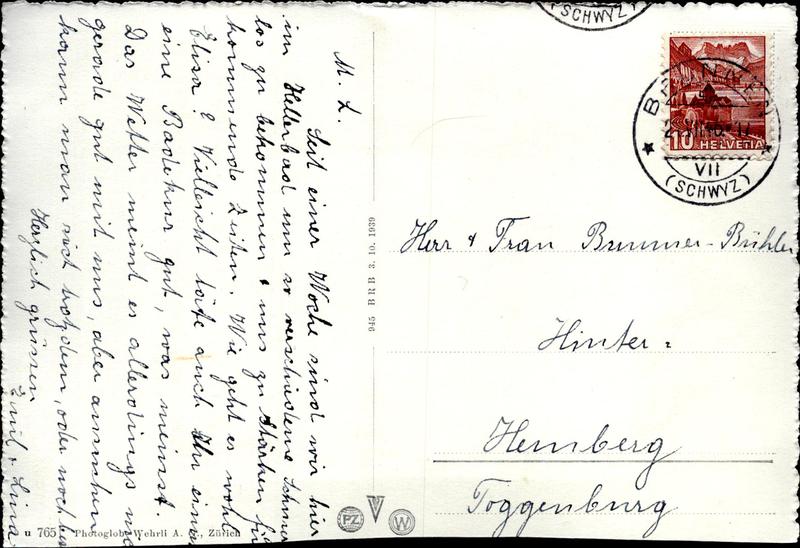 M. L.
Seit einer Woche sind wir hier
im Hellerbad um so verschiedene Schmer
los zu bekommen & uns zu stärken für
kommende Zeiten. Wie geht es wohl
Elisa? Vielleicht täte auch Ihr eine
eine Badekur gut, was meinst.
Das Wetter meint es allerdings
gerade gut mit uns, aber
kann man sich trotzdem, oder noch
Herzlich grüssen
Emil & Lina
u 765 Photoglob-Wehrli A. G., Zürich
945 BRB 3. 10. 1939
PZ W
(SCHWYZ)
BRUNNEN
VII
(SCHWYZ)
10 HELVETIA
Herr & Frau Brunner-Bühler
Hinter-
Hemberg
Toggenburg